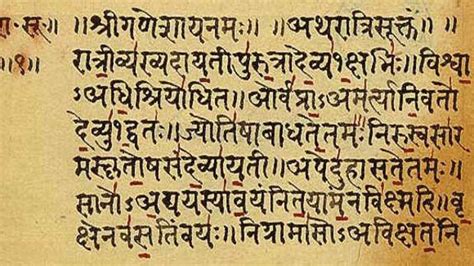 ॥श्रीगणेशायनमः॥ ॥अथरात्रिसूक्त
रात्रीव्यख्यदायतीपुरुत्रादेव्य१क्षभिः॥विश्वा
ऽअधिश्रियोधित॥ओर्वप्राऽअमर्त्यानिवतो
देव्यु१द्वतः॥ज्योतिषाबाधतेतमः॥निरुस्वसार
मस्कृतोषसंदेव्यायती॥अपेदुहासतेतमः॥
सानोऽअद्ययस्यावयंनितेयामनविक्ष्महि॥वृ
क्षेनवसतिंवयः॥निग्रामासोऽअविक्षतनि
॥१॥